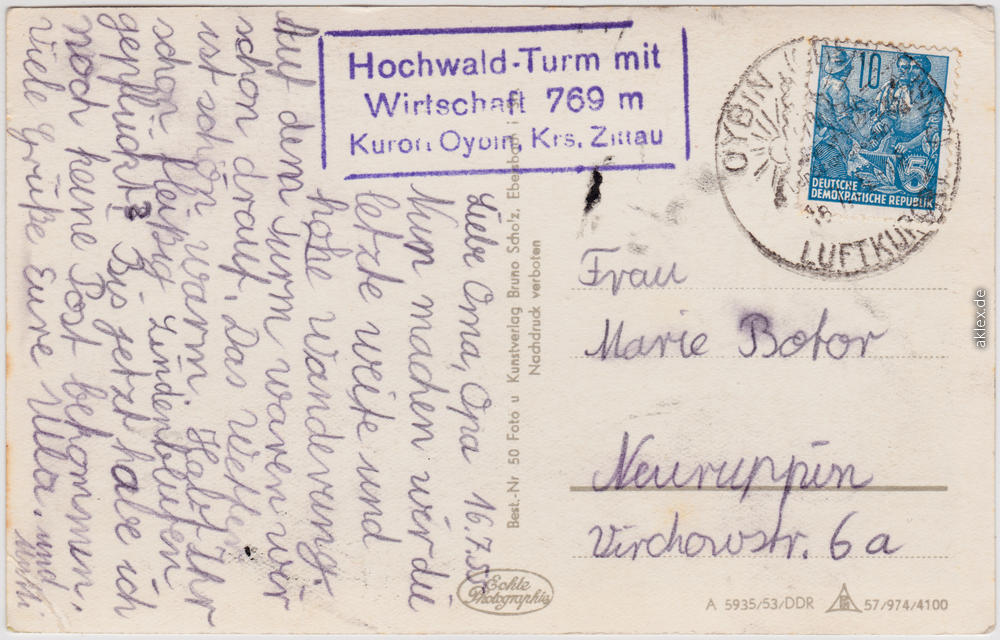 Hochwald-Turm mit
Wirtschaft 769 m
Kurort Oybin, Krs. Zittau
OYBIN
LUFTKURORT
10
5
DEUTSCHE
DEMOKRATISCHE REPUBLIK
Liebe Oma, Opa 16.7.
Nun machen wir die
letzte weite und
hohe Wanderung.
Auf dem Turm waren wir
schon drauf. Das Wetter
ist schön warm. Habt Ihr
schon fleißig Lindenblüten
gepflückt? Bis jetzt habe ich
noch keine Post bekommen.
Viele Grüße Eure Ulla. und
Best.-Nr 50 Foto u Kunstverlag Bruno Scholz, Ebersbach
Nachdruck verboten
Frau
Marie Botor
Neuruppin
Virchowstr. 6a
Echte
Photographie
A 5935/53/DDR 57/974/4100
aklex.de